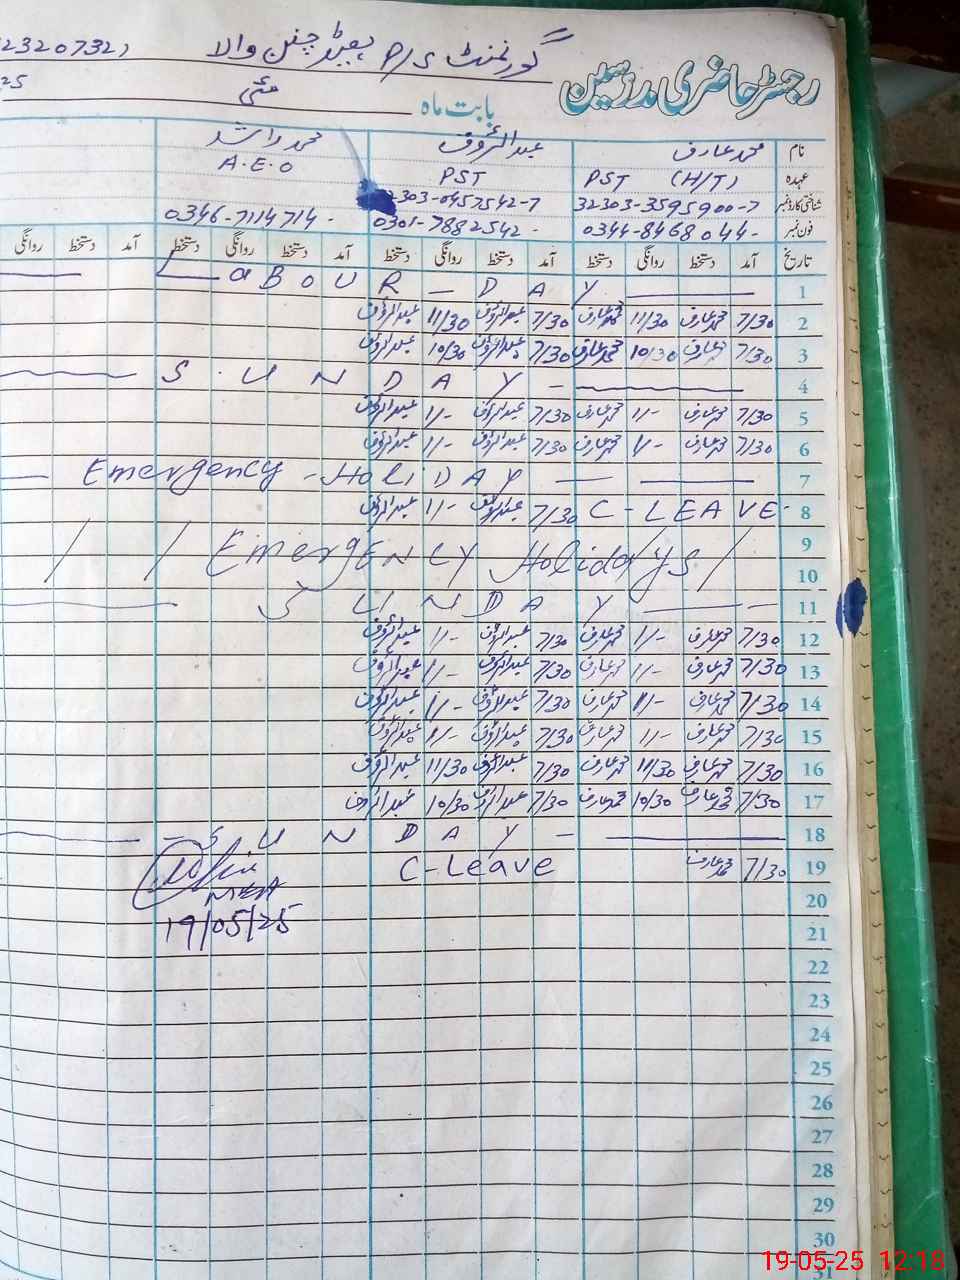 گورنمنٹ P/S بھیڈ چنن والا 23207321
رجسٹر حاضری مدرسین
بابت ماہ مئی 25
نام محمد عارف عبدالرؤف محمد راشد
عہدہ PST (H/T) PST A.E.O
شناختی کارڈ نمبر 32303-3595900-7 32303-0457542-7
فون نمبر 0344-8468044- 0301-7882542- 0346-7114714-
تاریخ آمد دستخط روانگی دستخط آمد دستخط روانگی دستخط آمد دستخط روانگی دستخط آمد دستخط روانگی
1 LaBOUR - DAY
2 7/30 محمد عارف 11/30 محمد عارف 7/30 عبدالرؤف 11/30 عبدالرؤف
3 7/30 محمد عارف 10/30 محمد عارف 7/30 عبدالرؤف 10/30 عبدالرؤف
4 SUNDAY -
5 7/30 محمد عارف 1/- محمد عارف 7/30 عبدالرؤف 1/- عبدالرؤف
6 7/30 محمد عارف 1/- محمد عارف 7/30 عبدالرؤف 1/- عبدالرؤف
7 Emergency - HoliDAY
8 C-LEAVE- 7/30 عبدالرؤف 1/- عبدالرؤف
9 / / EmergENCY Holidays /
10
11 SUNDAY
12 7/30 محمد عارف 1/- محمد عارف 7/30 عبدالرؤف 1/- عبدالرؤف
13 7/30 محمد عارف 1/- محمد عارف 7/30 عبدالرؤف 1/- عبدالرؤف
14 7/30 محمد عارف 1/- محمد عارف 7/30 عبدالرؤف 1/- عبدالرؤف
15 7/30 محمد عارف 1/- محمد عارف 7/30 عبدالرؤف 1/- عبدالرؤف
16 7/30 محمد عارف 11/30 محمد عارف 7/30 عبدالرؤف 11/30 عبدالرؤف
17 7/30 محمد عارف 10/30 محمد عارف 7/30 عبدالرؤف 10/30 عبدالرؤف
18 - SUNDAY -
19 7/30 محمد عارف C-Leave
20 MEA
21 19/05/25
22
23
24
25
26
27
28
29
30
31
19-05-25 12:18